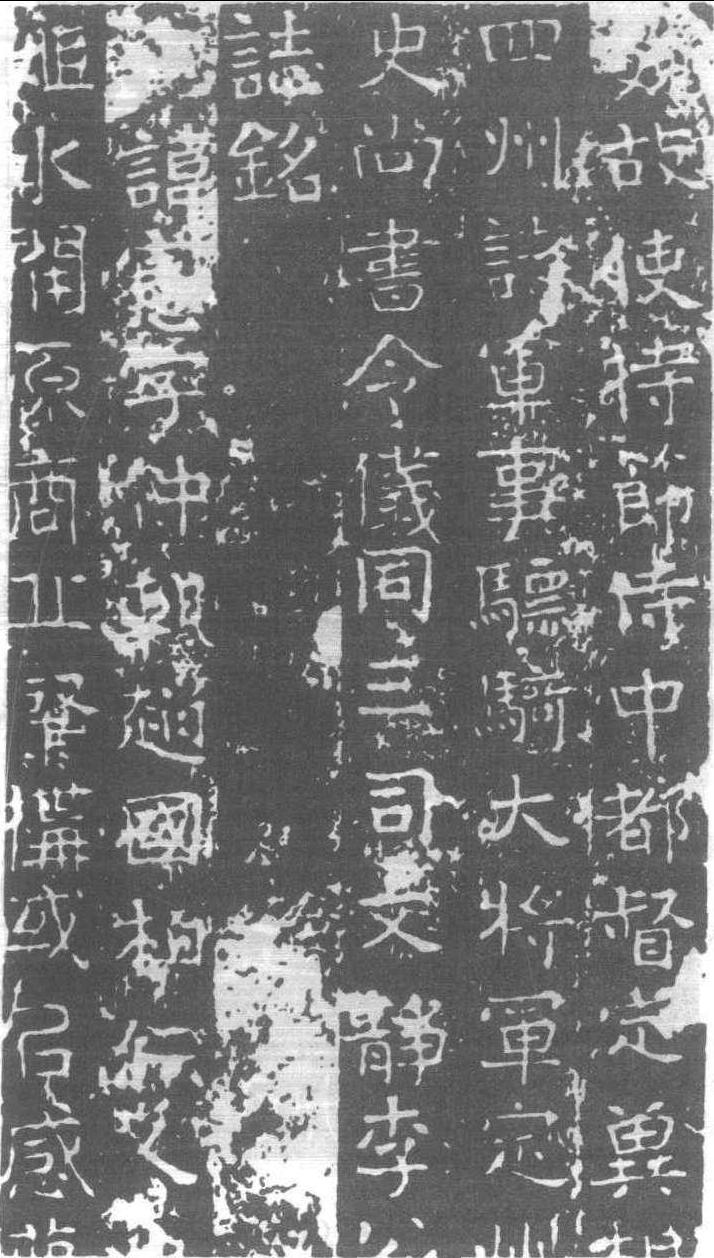 魏故使持節侍中都督定冀相
四州諸軍事驃騎大將軍定州
史尚書令儀同三司文靜李公
誌銘
諱憲字仲軌趙國柏仁
水開原商丘肇構或感